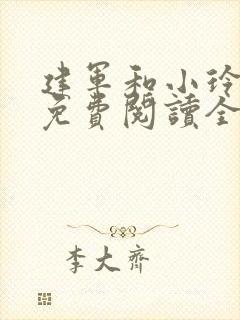 建軍和小玲
免費閱讀全
李大齊